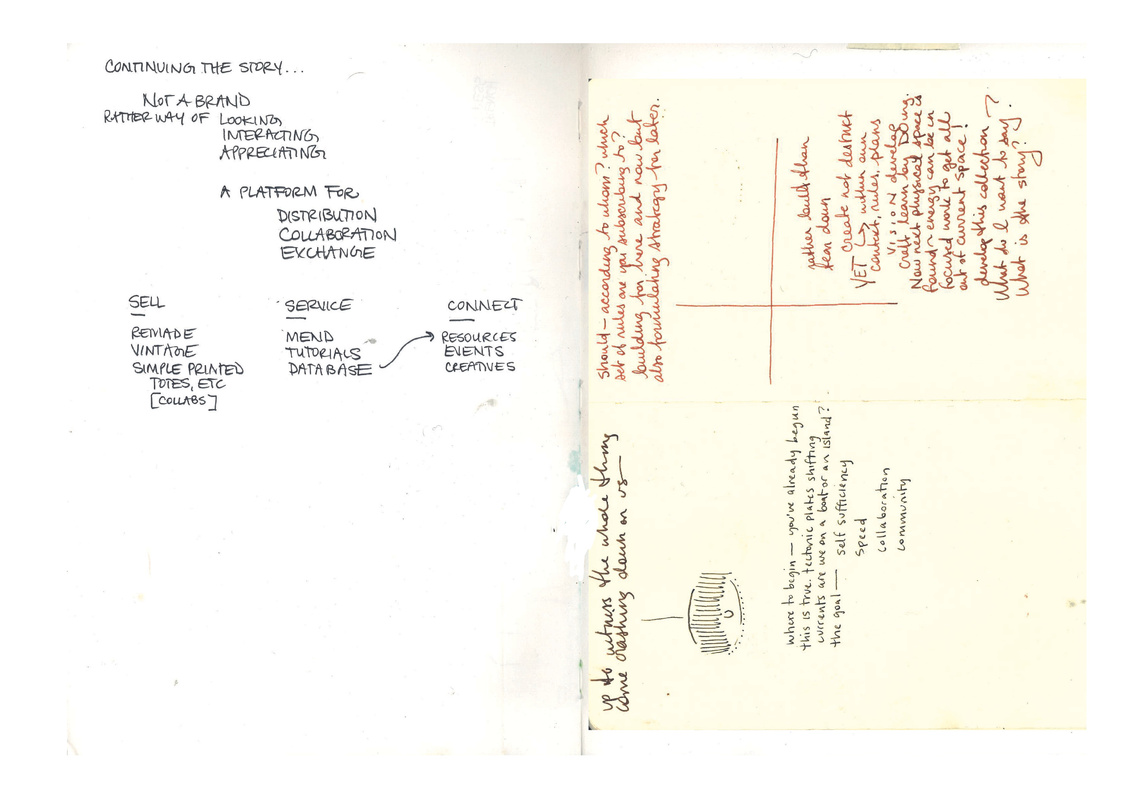 CONTINUING THE STORY...
NOT A BRAND
RATHER WAY OF LOOKING
INTERACTING
APPRECIATING
A PLATFORM FOR
DISTRIBUTION
COLLABORATION
EXCHANGE
SELL
REMADE
VINTAGE
SIMPLE PRINTED
TOTES, ETC
[COLLABS]
SERVICE
MEND
TUTORIALS
DATABASE
CONNECT
RESOURCES
EVENTS
CREATIVES
up to witness the whole thing
come crashing down on us—
where to begin — you've already begun
this is true. tectonic plates shifting
currents are we on a boat or an island?
the goal — self sufficiency
speed
collaboration
community
should — according to whom? which
set of rules are you subscribing to?
building for here and now but
also formulating strategy for later..
rather built than
torn down
create not destruct
YET ↳ within own
context, rules. plans
VISION develop
craft learn by DOing.
Now next physical space is
found ~ energy can be in
focused work to get all
out of current space!
develop this collection — ?
What do I want to say?
What is the story?